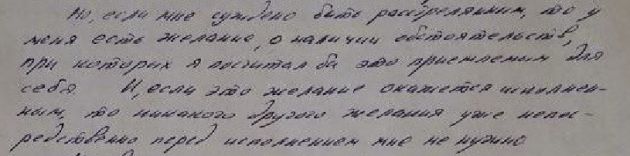 Но, если мне суждено быть расстрелянным, то у
меня есть желание, о наличии обстоятельств,
при которых я посчитал бы это приемлемым для
себя. И, если это желание окажется исполнен-
ным, то никакого другого желания уже непос-
редственно перед исполнением мне не нужно